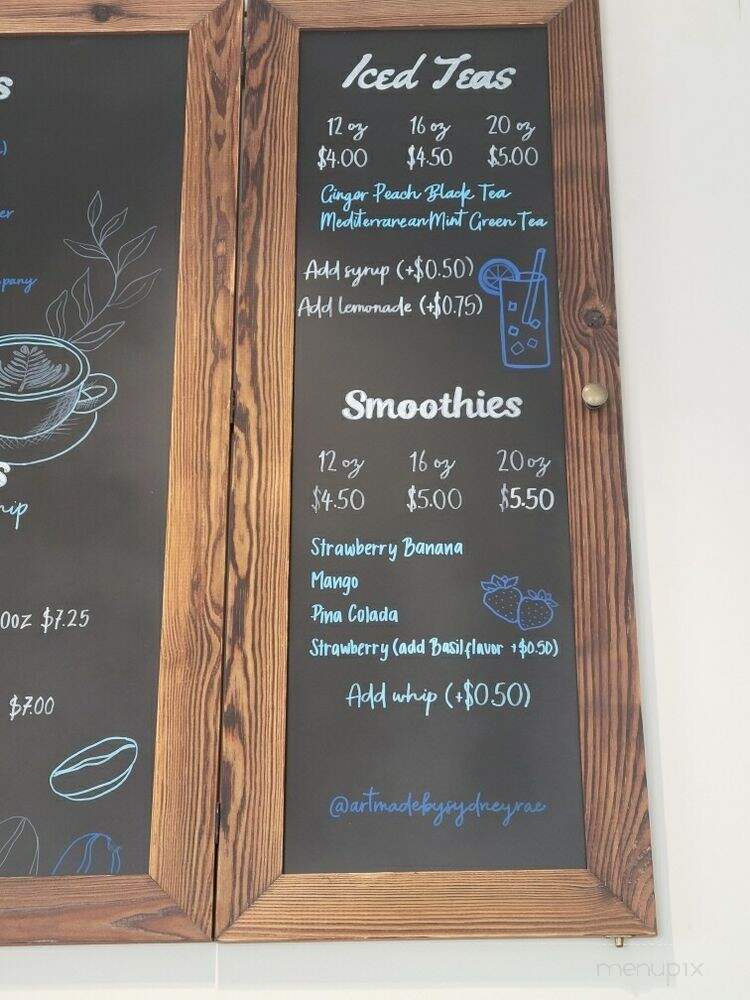 s
)
er
pany
s
hip
0oz $7.25
$7.00
Iced Teas
12 oz 16 oz 20 oz
$4.00 $4.50 $5.00
Ginger Peach Black Tea
Mediterranean Mint Green Tea
Add syrup (+$0.50)
Add lemonade (+$0.75)
Smoothies
12 oz 16 oz 20 oz
$4.50 $5.00 $5.50
Strawberry Banana
Mango
Pina Colada
Strawberry (add Basil flavor +$0.50)
Add whip (+$0.50)
@artmadebysydneyrae
menupix